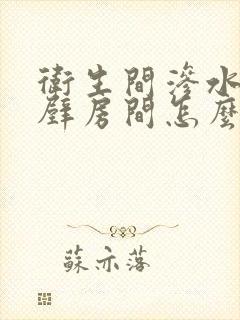 衛生間滲水
壁房間怎麼
蘇亦落